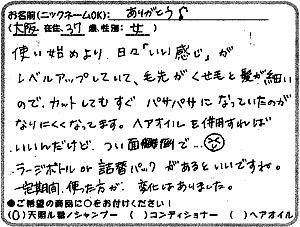 お名前(ニックネームOK): ありがとう♪
(大阪 在住、37 歳、性別: 女 )
使い始めより、日々「いい感じ」が
レベルアップしていて、毛先がくせ毛と髪が細い
ので、カットしてもすぐ パサパサに なっていたのが
なりにくくなってます。ヘアオイルを併用すれば
いいんだけど、つい面倒で…
ラージボトル or 詰替パック があるといいですね。
一定期間、使った方が、変化はありました。
●ご希望の商品に○をお付けください!
(○)天照ル髪ノシャンプー ( )コンディショナー ( )ヘアオイル